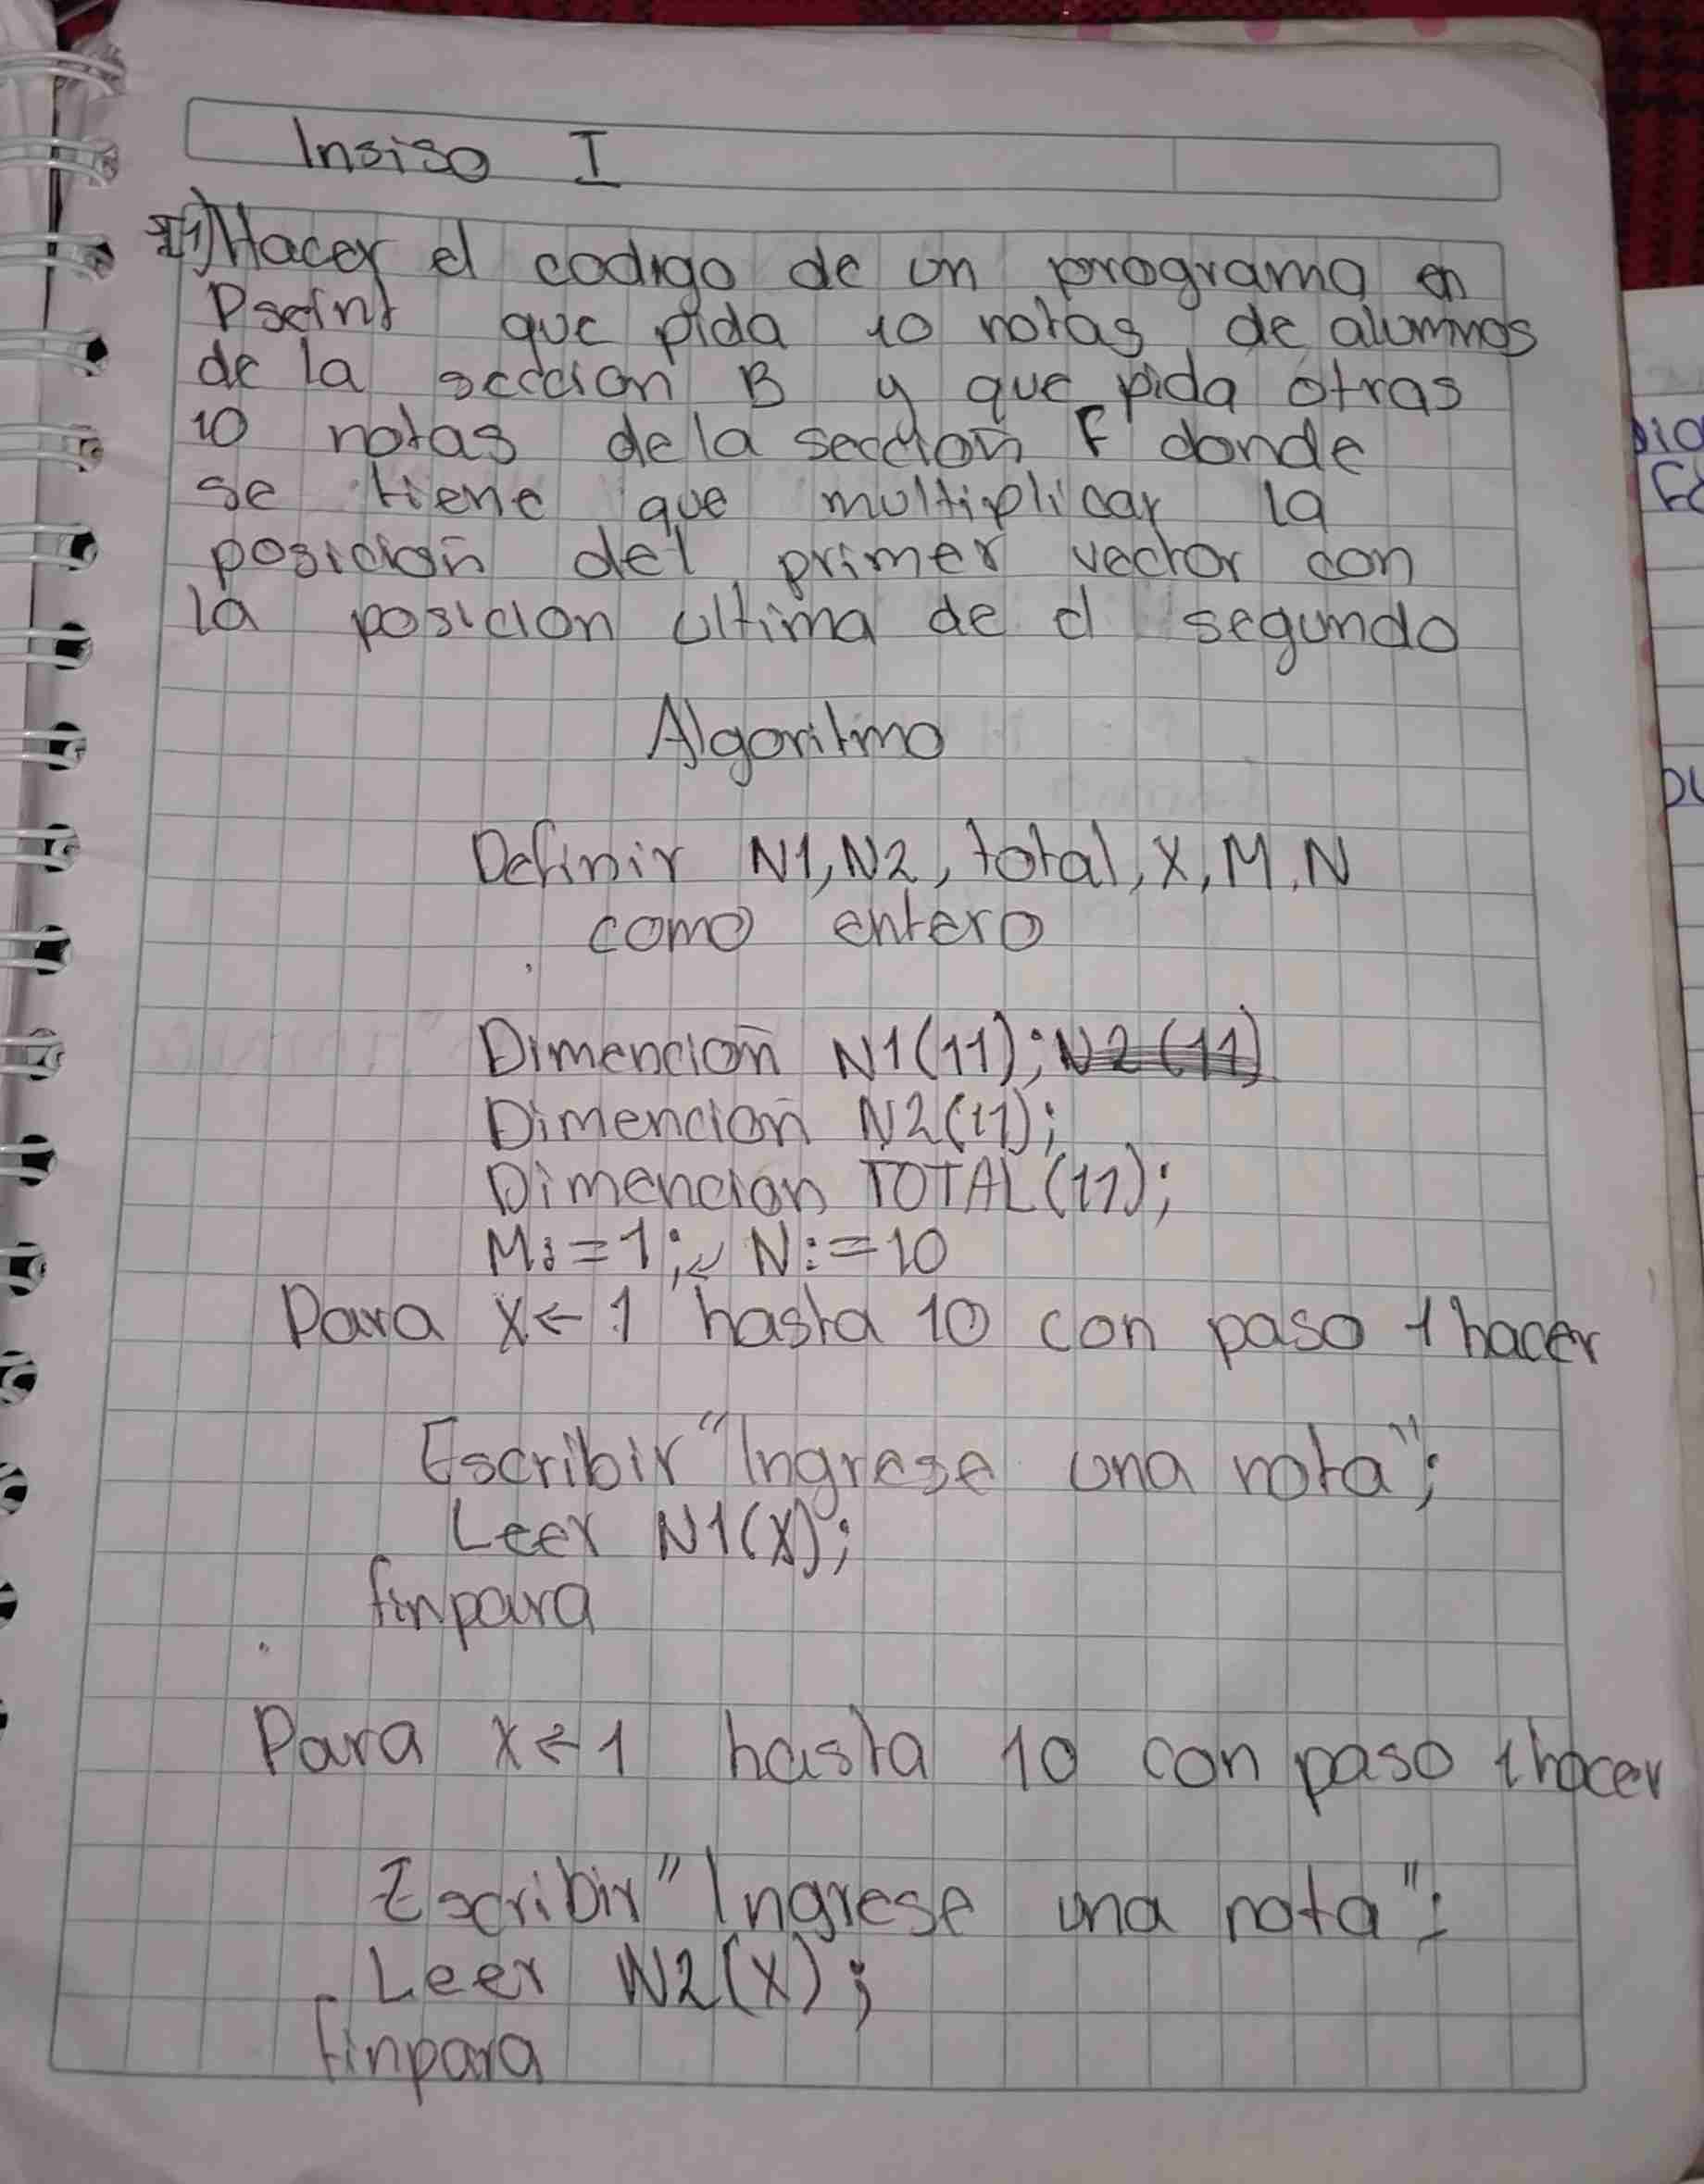 Insiso I
I1) Hacer el codigo de un programa en
Pseint que pida 10 notas de alumnos
de la seccion B y que pida otras
10 notas de la seccion F donde
se tiene que multiplicar la
posicion del primer vector con
la posicion ultima de el segundo
Algoritmo
Definir N1, N2, total, X, M, N
como entero
Dimencion N1(11); N2(11)
Dimencion N2(11);
Dimencion TOTAL(11);
M:=1; N:=10
Para X←1 hasta 10 con paso 1 hacer
Escribir "Ingrese una nota";
Leer N1(X);
finpara
Para X←1 hasta 10 con paso 1 hacer
Escribir "Ingrese una nota";
Leer N2(X);
finpara